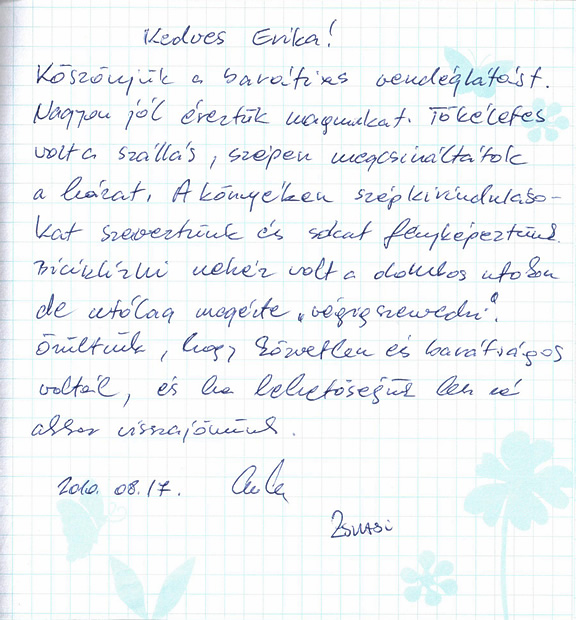 Kedves Erika!
Köszönjük a barátias vendéglátást.
Nagyon jól éreztük magunkat. Tökéletes
volt a szállás, szépen megcsináltátok
a házat. A környéken szép kiránduláso-
kat szereztünk és sokat fényképeztünk.
Biciklizni nehéz volt a dombos utakon
de utólag megérte „végigszenvedni".
Örültünk, hogy közvetlen és barátságos
voltál, és ha lehetőségünk lesz rá
akkor visszajövünk.
2010. 08. 17.
Zsuzsi